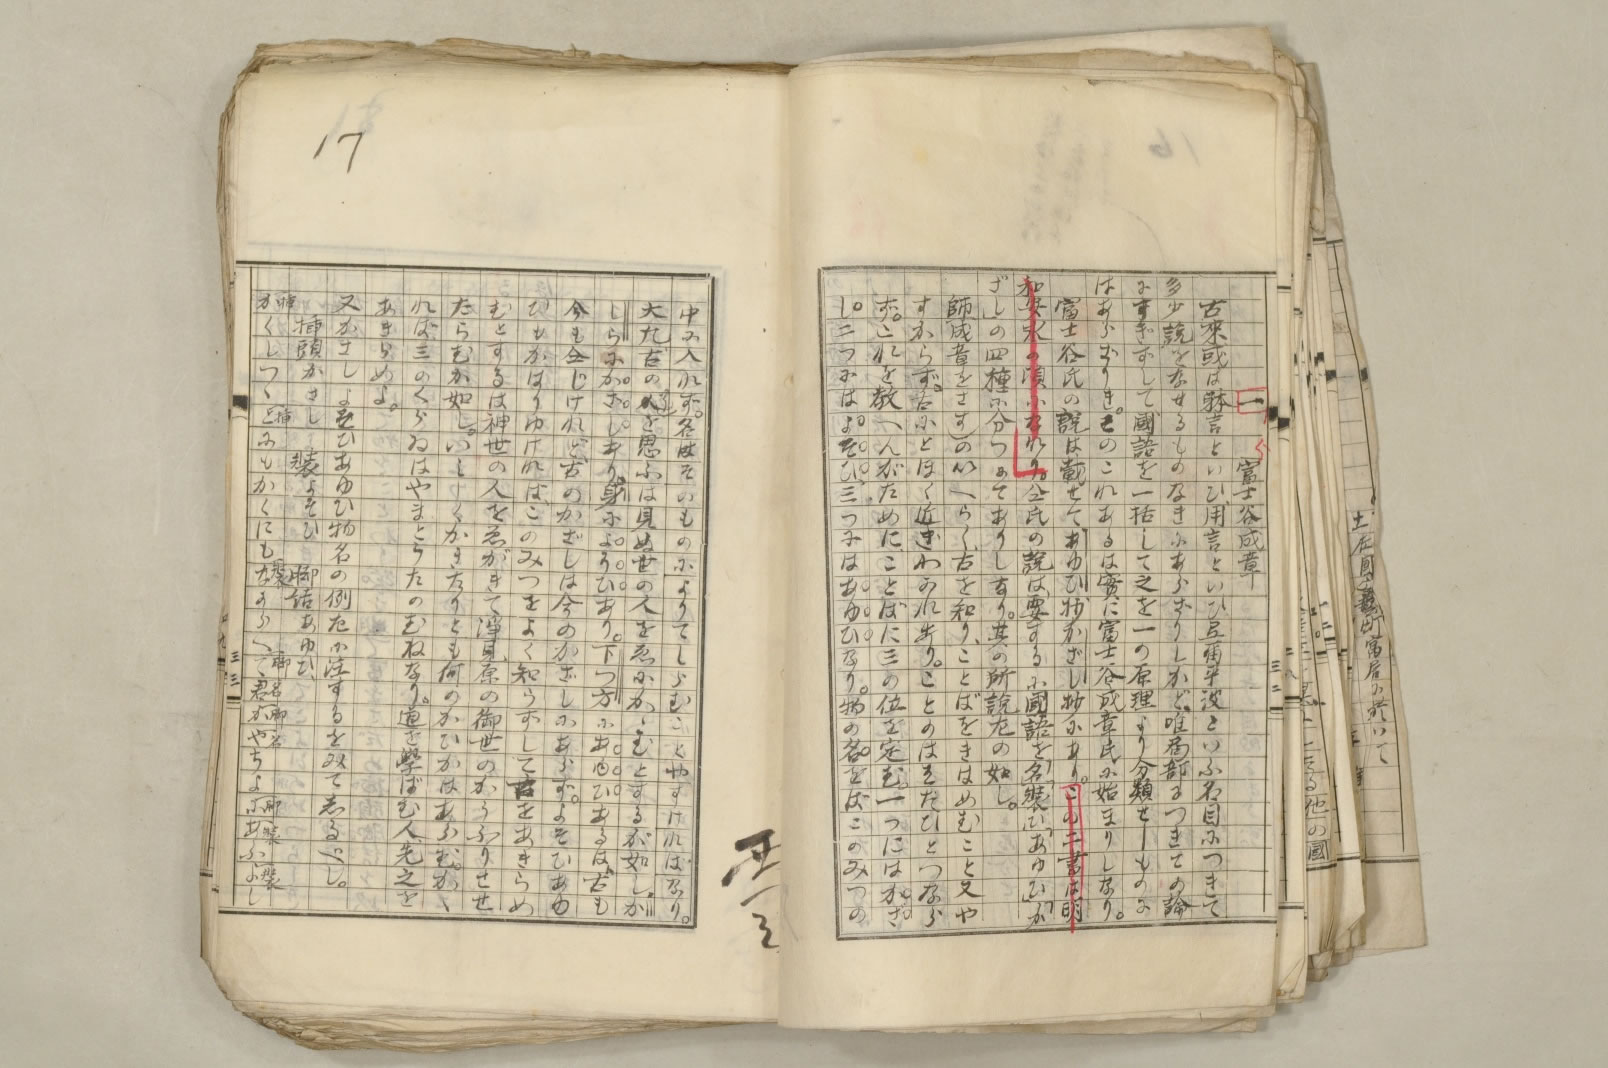 一、富士谷成章
古來或は躰言といひ、用言といひ、弖爾乎波といふ名目につきて
多少說をなせるものなきにあらざりしかど、唯局部につきての論
にすぎずして國語を一括して之を一の原理より分類せしものに
はあらざりき。そのこれあるは實に富士谷成章氏に始まりしなり。
富士谷氏の說は載せて、あゆひ抄かざし抄にあり。この二書は明
和安永の頃になれり。仝氏の說は要するに國語を「名」「裝ひ」「あゆひ」「か
ざし」の四種に分つにてありしなり。其の所說左の如し。
師(成章をさす)のいへらく、古を知り、ことばをきはめむこと又や
すからず。古にとほく近きわかれあり。ことのはまたひとつなら
ず。これを敎へんがためにことばに三の位を定む。一つにはかざ
し。二つにはよそひ。三つにはあゆひなり。物の名をばこのみつの
17
中に入れず。名はそのものによりてしらむことやすければなり。
大凡古の人を思ふは見ぬ世の人をゑにかゝむとするが如し。か
しらにかざしあり。身によそひあり。下つ方にあゆひあるは古も
今も仝じけれど、古のかざしは今のかざしにあらず。よそひあゆ
ひもかはりゆければ、このみつをよく知らずして古をあきらめ
むとするは神世の人をゑがきて淨見原の御世のかうふりせせ
たらむが如し。いとよくかきたりとも何のかひかはあらむ。かゝ
れば三のくらゐはやまとうたのむねなり。道を學ばむ人、先之を
あきらめよ。
又かさしよそひあゆひ物名の例左に注するをみて志るべし。
插頭かさし 裝よそひ 脚結あゆひ
かくしつゝとにもかくにもながらへて君がやちよにあふよし